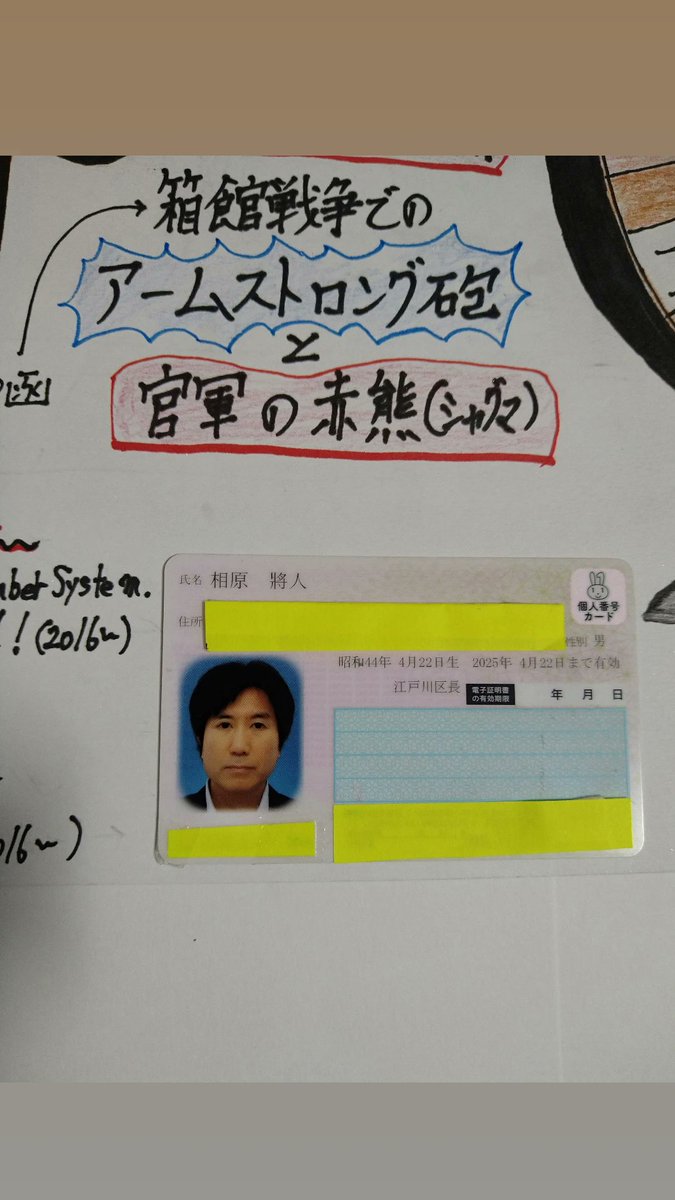 箱館戦争での
アームストロング砲
と
官軍の赤熊(シャグマ)
System.
!(2016~)
氏名 相原 將人
個人番号
カード
住所
性別 男
昭和44年 4月22日生 2025年 4月22日まで有効
江戸川区長 電子証明書の有効期限 年 月 日
016~)